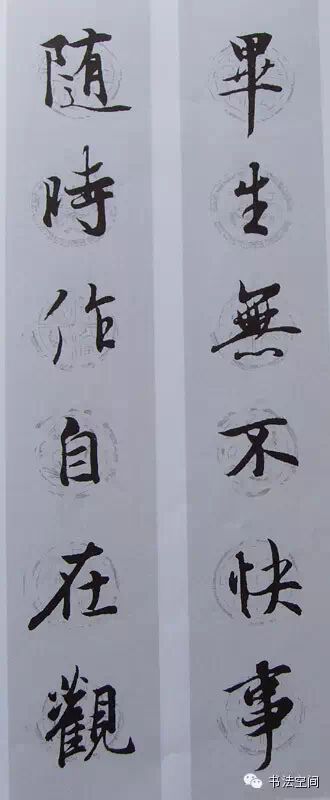 畢生無不快事
随時作自在觀
书法空间